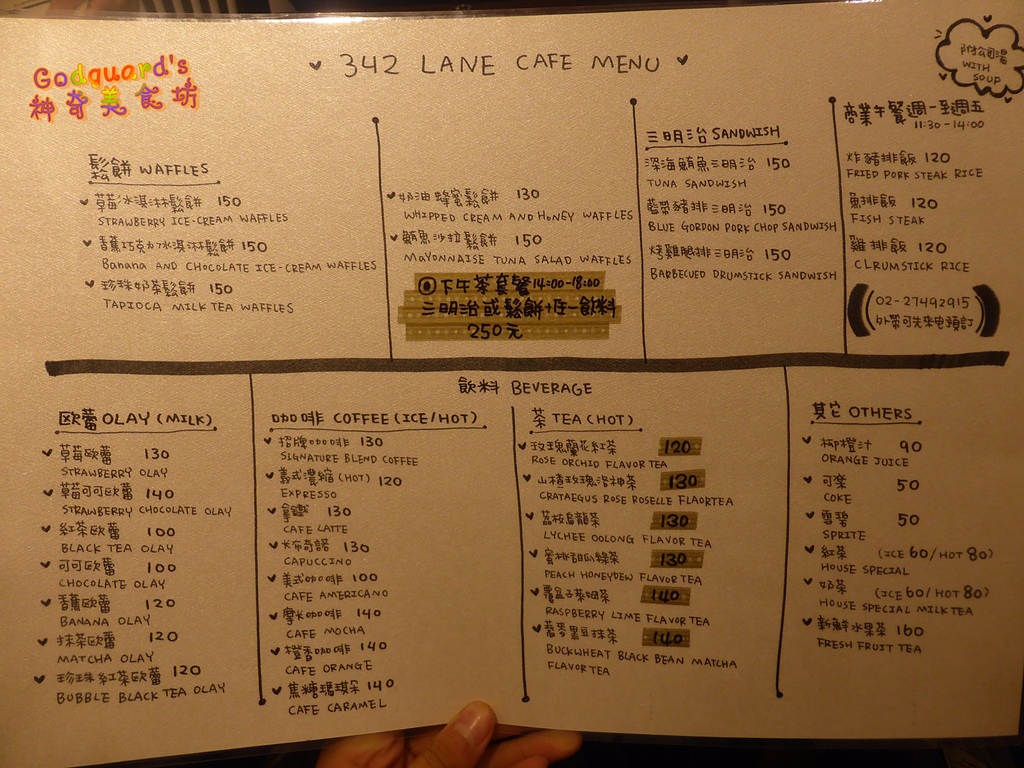 Godguard's
神奇美食坊
342 LANE CAFE MENU
附公司湯
WITH
SOUP
鬆餅 WAFFLES
草莓冰淇淋鬆餅 150
STRAWBERRY ICE-CREAM WAFFLES
香蕉巧克力冰淇淋鬆餅 150
Banana AND CHOCOLATE ICE-CREAM WAFFLES
珍珠奶茶鬆餅 150
TAPIOCA MILK TEA WAFFLES
奶油蜂蜜鬆餅 130
WHIPPED CREAM AND HONEY WAFFLES
鮪魚沙拉鬆餅 150
MaYONNAISE TUNA SALAD WAFFLES
下午茶套餐 14:00-18:00
三明治或鬆餅+任一飲料
250元
三明治 SANDWISH
深海鮪魚三明治 150
TUNA SANDWISH
藍帶豬排三明治 150
BLUE GORDON PORK CHOP SANDWISH
烤雞腿排三明治 150
BARBECUED DRUMSTICK SANDWISH
商業午餐週一至週五
11:30-14:00
炸豬排飯 120
FRIED PORK STEAK RICE
魚排飯 120
FISH STEAK
雞排飯 120
CLRUMSTICK RICE
02-27492915
外帶可先來电預訂
飲料 BEVERAGE
欧蕾 OLAY (MILK)
草莓欧蕾 130
STRAWBERRY OLAY
草莓可可欧蕾 140
STRAWBERRY CHOCOLATE OLAY
紅茶欧蕾 100
BLACK TEA OLAY
可可欧蕾 100
CHOCOLATE OLAY
香蕉欧蕾 120
BANANA OLAY
抹茶欧蕾 120
MATCHA OLAY
珍珠紅茶欧蕾 120
BUBBLE BLACK TEA OLAY
咖啡 COFFEE (ICE/HOT)
招牌咖啡 130
SIGNATURE BLEND COFFEE
義式濃縮 (HOT) 120
EXPRESSO
拿鐵 130
CAFE LATTE
卡布奇諾 130
CAPUCCINO
美式咖啡 100
CAFE AMERICANO
摩卡咖啡 140
CAFE MOCHA
橙香咖啡 140
CAFE ORANGE
焦糖瑪琪朵 140
CAFE CARAMEL
茶 TEA (HOT)
玫瑰蘭花紅茶 120
ROSE ORCHID FLAVOR TEA
山楂玫瑰洛神茶 130
CRATAEGUS ROSE ROSELLE FLAORTEA
荔枝烏龍茶 130
LYCHEE OOLONG FLAVOR TEA
蜜桃甜瓜綠茶 130
PEACH HONEYDEW FLAVOR TEA
覆盆子萊姆茶 140
RASPBERRY LIME FLAVOR TEA
蕎麥黑豆抹茶 140
BUCKWHEAT BLACK BEAN MATCHA
FLAVOR TEA
其它 OTHERS
柳橙汁 90
ORANGE JUICE
可樂 50
COKE
雪碧 50
SPRITE
紅茶 (ICE 60/HOT 80)
HOUSE SPECIAL
奶茶 (ICE 60/HOT 80)
HOUSE SPECIAL MILK TEA
新鮮水果茶 160
FRESH FRUIT TEA